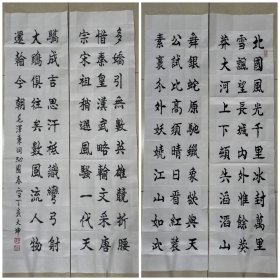 北國風光千里冰封萬里
雪飄望長城內外惟餘莽
莽大河上下頓失滔滔山
舞銀蛇原馳蠟象欲與天
公試比高須晴日看紅裝
素裹分外妖嬈江山如此
多嬌引無數英雄競折腰
惜秦皇漢武略輸文采唐
宗宋祖稍遜風騷一代天
驕成吉思汗祗識彎弓射
大鵰俱往矣數風流人物
還看今朝 毛澤東詞沁園春雪